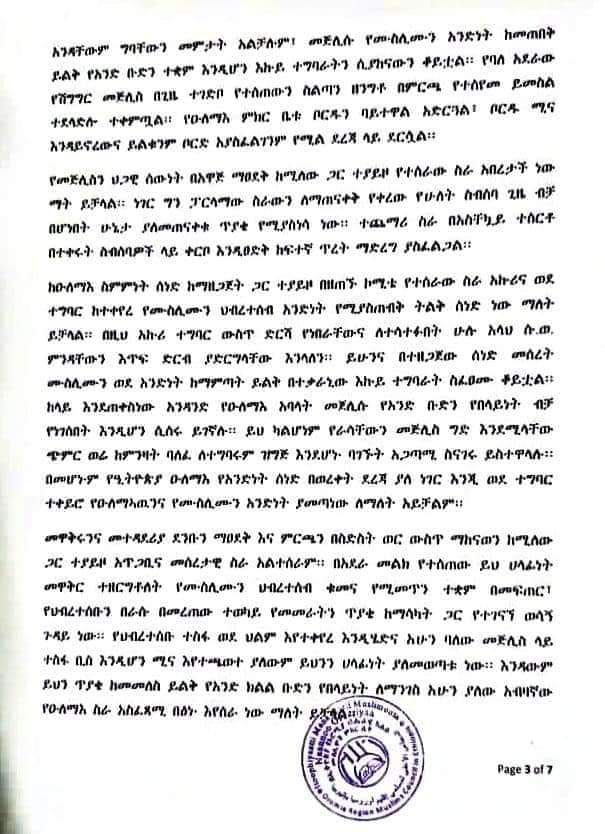 አንዳቸውም ግባቸውን መምታት አልቻሉም፣ መጅሊሱ የሙስሊሙን አንድነት ከመጠበቅ
ይልቅ የአንድ ቡድን ተቋም እንዲሆን እኩይ ተግባራትን ሲያከናውን ቆይቷል። የባለ አደራው
የሽግግር መጅሊስ በጊዜ ተገድቦ የተሰጠውን ስልጣን ዘንግቶ በምርጫ የተሰየመ ይመስል
ተደላድሎ ተቀምጧል። የዑለማእ ምክር ቤቱ ቦርዱን ባይተዋል አድርጓል፣ ቦርዱ ሚና
እንዳይኖረውና ይልቁንም ቦርድ አያስፈልገንም የሚል ደረጃ ላይ ደርሷል።
የመጅሊስን ህጋዊ ሰውነት በአዋጅ ማፀደቅ ከሚለው ጋር ተያይዞ የተሰራው ስራ አበረታች ነው
ማት ይቻላል። ነገር ግን ፓርላማው ስራውን ለማጠናቀቅ የቀረው የሁለት ስብሰባ ጊዜ ብቻ
በሆነበት ሁኔታ ያለመጠናቀቁ ጥያቄ የሚያስነሳ ነው። ተጨማሪ ስራ በአስቸኳይ ተሰርቶ
በተቀሩት ስብሰባዎች ላይ ቀርቦ እንዲፀድቅ ከፍተኛ ጥረት ማድረግ ያስፈልጋል።
ከዑለማእ ስምምነት ሰነድ ከማዘጋጀት ጋር ተያይዞ በዘጠኙ ኮሚቴ የተሰራው ስራ አኩሪና ወደ
ተግባር ከተቀየረ የሙስሊሙን ህብረተሰብ አንድነት የሚያስጠብቅ ትልቅ ሰነድ ነው ማለት
ይቻላል። በዚህ አኩሪ ተግባር ውስጥ ድርሻ የነበራቸውና ለተሳተፉበት ሁሉ አላህ ሱ.ወ.
ምንዳቸውን እጥፍ ድርብ ያድርግላቸው እንላለን። ይሁንና በተዘጋጀው ሰነድ መሰረት
ሙስሊሙን ወደ አንድነት ከማምጣት ይልቅ በተቃራኒው እኩይ ተግባራት ስፈፀሙ ቆይቷል።
ከላይ እንደጠቀስነው አንዳንድ የዑለማእ አባላት መጅሊሱ የአንድ ቡድን የበላይነት ብቻ
የነገሰበት እንዲሆን ሲሰሩ ይገኛሉ። ይህ ካልሆነም የራሳቸውን መጅሊስ ግድ እንደሚላቸው
ጭምር ወሬ ከምንዛት ባለፈ ለተግባሩም ዝግጅ እንደሆኑ ባገኙት አጋጣሚ ስናገሩ ይስተዋላሉ።
በመሆኑም የኢትዮጵያ ዑለማእ የአንድነት ሰነድ በወረቀት ደረጃ ያለ ነገር እንጂ ወደ ተግባር
ተቀይሮ የዑለማኡዉንና የሙስሊሙን አንድነት ያመጣነው ለማለት አይቻልም።
መዋቅሩንና መተዳደሪያ ደንቡን ማፀደቅ እና ምርጫን በስድስት ወር ውስጥ ማከናወን ከሚለው
ጋር ተያይዞ አጥጋቢና መሰረታዊ ስራ አልተሰራም። በአደራ መልክ የተሰጠው ይህ ሀላፊነት
መዋቅር ተዘርግቶለት የሙስሊሙን ህብረተሰብ ቁመና የሚመጥን ተቋም በመፍጠር፣
የህብረተሰቡን በራሱ በመረጠው ተወካይ የመመራትን ጥያቄ ከማሳካት ጋር የተገናኘ ወሳኝ
ጉዳይ ነው። የህብረተሰቡ ተስፋ ወደ ህልም እየተቀየረ እንዲሄድና አሁን ባለው መጅሊስ ላይ
ተስፋ ቢስ እንዲሆን ሚና እየተጫወተ ያለውም ይህንን ሀላፊነት ያለመወጣቱ ነው። እንዳውም
ይህን ጥያቄ ከመመለስ ይልቅ የአንድ ክልል ቡድን የበላይነት ለማንገስ አሁን ያለው አብባኛው
የዑለማእ ስራ አስፈጻሚ በፅኑ እየሰራ ነው ማለት ይቻላል
Page 3 of 7